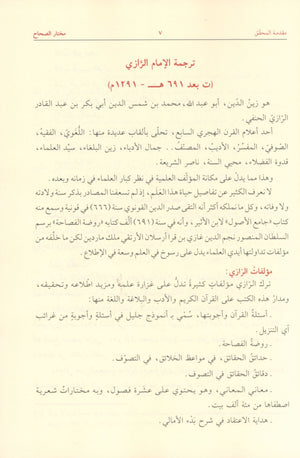 مقدمة المحقق ٧ مختار الصحاح
ترجمة الإمام الرَّازي
(ت بعد ٦٩١ هـ - ١٢٩١م)
هو زينُ الدّين، أبو عبد الله، محمد بن شمس الدين أبي بكر بن عبد القادر
الرّازيّ الحنفي.
أحد أعلام القرن الهجري السابع، تحلّى بألقاب عديدة منها: اللُّغويّ، الفقيهُ،
الصُّوفيّ، المفسِّرُ، الأديبُ، المصنّفُ.. جمال الأدباء، زين البلغاء، سيّد العلماء،
قدوة الفضلاء، محيي السنة، ناصر الشريعة.
وهذا مما يدلُّ على مكانة المؤلّف العلمية في نظر كبار العلماء في زمانه وبعده.
لا نعرف الكثير عن تفاصيل حياة هذا العَلَم، إذ لم تسعفنا المصادر بذكر سنة ولادته
ولا وفاته، وكل ما نملكه أكثر أنه التقى صدر الدين القونوي سنة (٦٦٦) في قونية وسمع منه
كتاب «جامع الأصول» لابن الأثير، وأنه في سنة (٦٩١) ألَّف كتابه «روضة الفصاحة» برسم
السلطان المنصور نجم الدين غازي بن قرا أرسلان الأرتقي ملك ماردين لكن ما خلّفه من
مؤلفات تداولتها أيدي العلماء يدل على رسوخ في العلم وسعة في الإطلاع.
مؤلفاتُ الرَّازي:
ترك الرّازي مؤلفاتٍ كثيرةً تدلُّ على غزارة علمه ومزيد اطّلاعه وتحقيقه،
ومدارُ هذه الكتب على القرآن الكريم والأدب والبلاغة واللغة منها:
. أسئلةُ القرآن وأجوبتها، سمّي بـ أنموذج جليل في أسئلةٍ وأجوبةٍ من غرائب
آي التنزيل.
. روضةُ الفصاحة.
. حدائقُ الحقائق، في مواعظ الخلائق، في التصوف.
. دقائقُ الحقائق، في التصوف.
. معاني المعاني، وهو يحتوي على عشرة فصول، وبه مختاراتٌ شعرية
اصطفاها من مئة ألف بيت.
. هداية الاعتقاد في شرح بَدْء الأمالي.